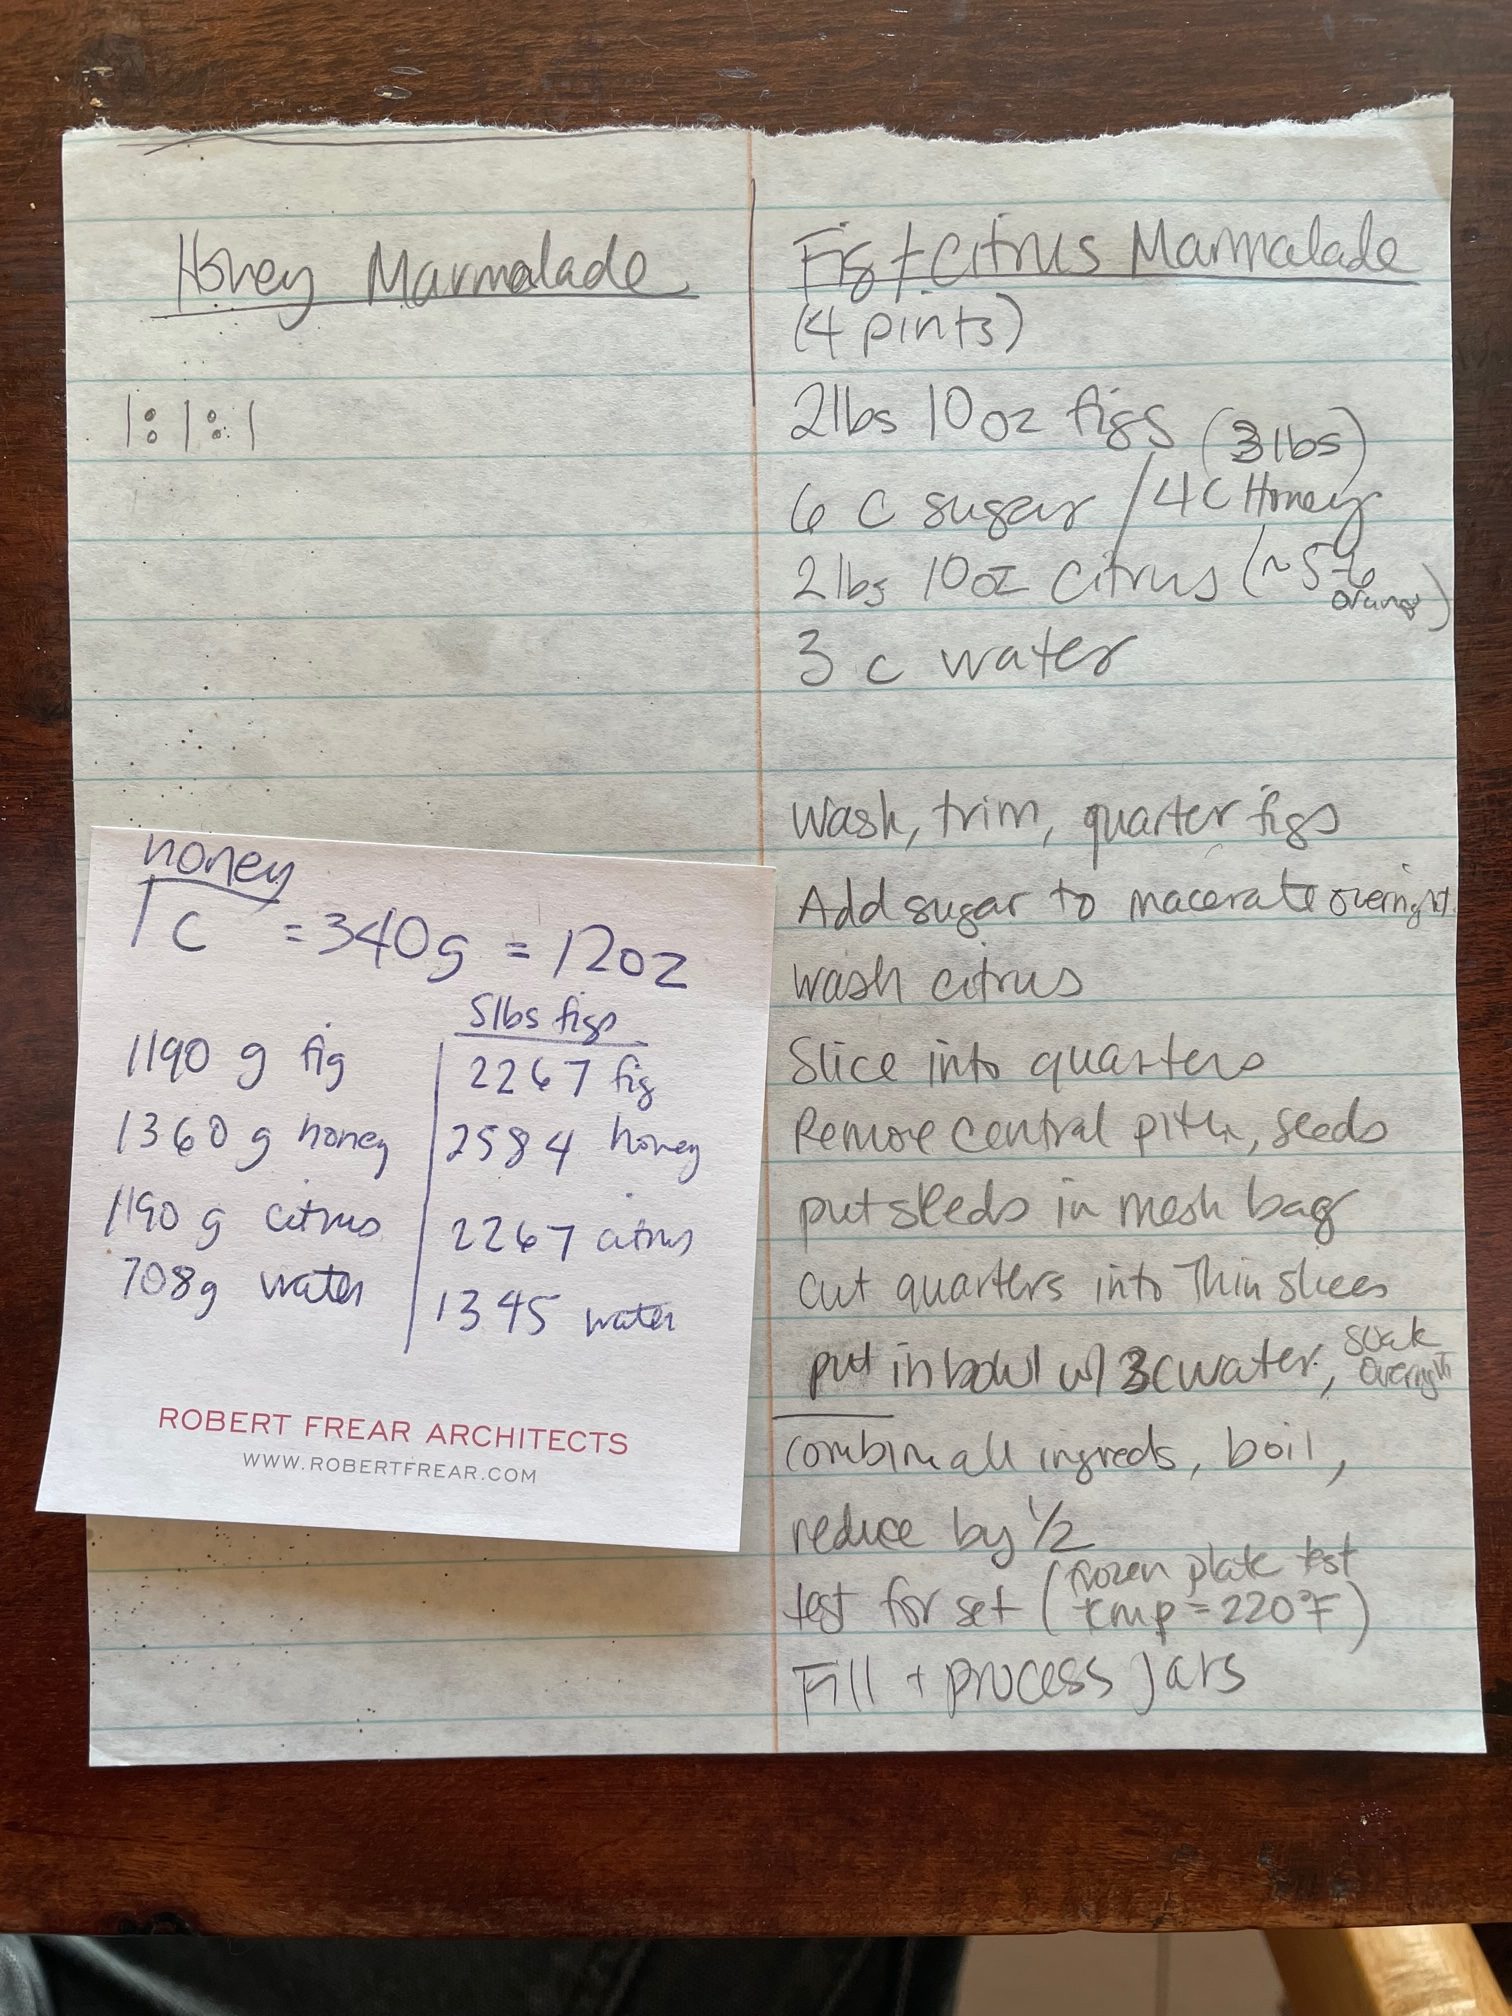 Honey Marmalade
1:1:1
Fig + Citrus Marmalade
(4 pints)
2lbs 10oz figs (3lbs)
6 c sugar / 4c Honey
2lbs 10oz citrus (~5-6 oranges)
3 c water
Wash, trim, quarter figs
Add sugar to macerate overnight
wash citrus
Slice into quarters
Remove central pith, seeds
put seeds in mesh bag
cut quarters into thin slices
put in bowl w/ 3c water, soak overnight
combine all ingreds, boil,
reduce by 1/2
test for set (frozen plate test
temp = 220°F)
Fill + process jars
honey
1 c = 340g = 12oz
1190 g fig
1360 g honey
1190 g citrus
708g water
5lbs figs
2267 fig
2584 honey
2267 citrus
1345 water
ROBERT FREAR ARCHITECTS
WWW.ROBERTFREAR.COM